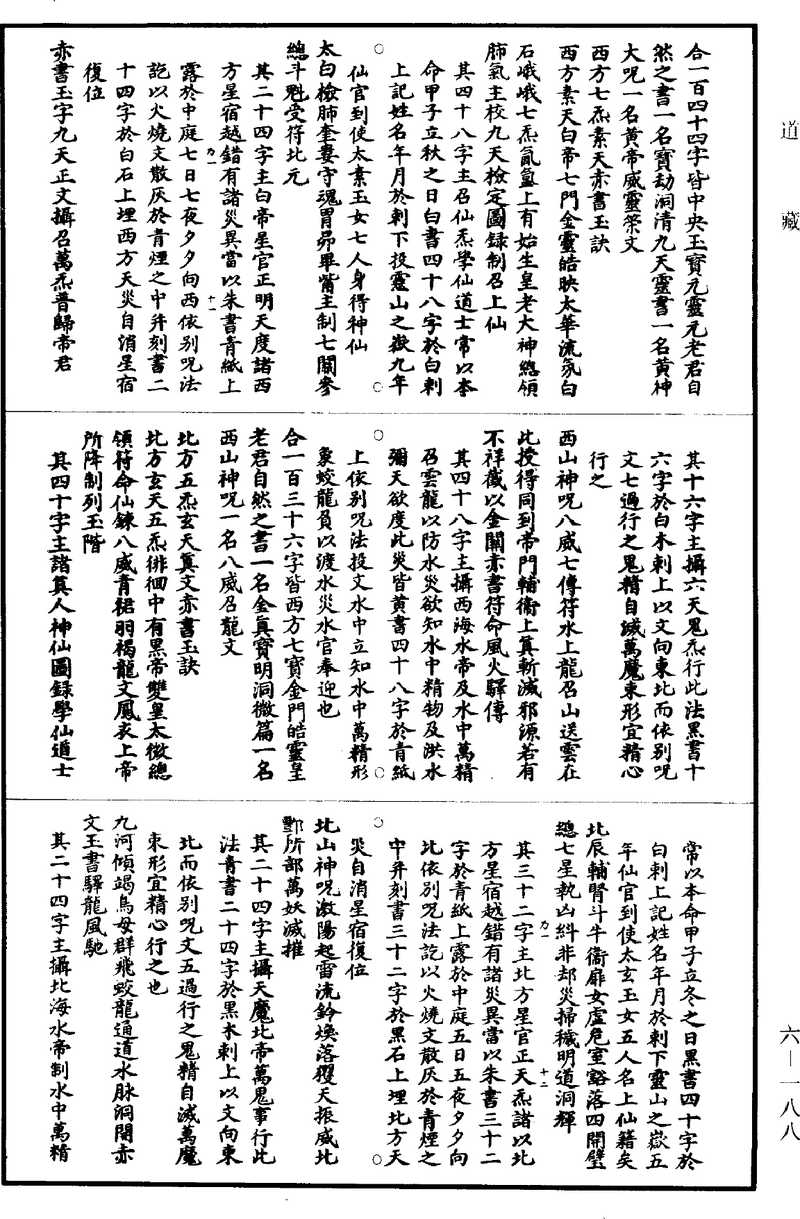 道藏
合一百四十四字皆中央玉寶元靈元老君自
然之書一名寶劫洞清九天靈書一名黃神
大呪一名黃帝威靈策文
西方七炁素天赤書玉訣
西方素天白帝七門金靈皓映太華流氛白
石峨峨七炁氤氳上有始生皇老大神總領
肺氣主校九天檢定圖錄制召上仙
其四十八字主召仙炁學仙道士常以本
命甲子立秋之日白書四十八字於白刺
上記姓名年月於刺下投靈山之嶽九年
仙官到使太素玉女七人身得神仙
太白檢肺奎婁守魂胃昴畢觜主制七關參
總斗魁受符北元
其二十四字主白帝星官正明天度諸西
方星宿越錯有諸災異當以朱書青紙上
露於中庭七日七夜夕夕向西依別呪法
訖以火燒文散灰於青煙之中并刻書二
十四字於白石上埋西方天災自消星宿
復位
赤書玉字九天正文攝召萬炁普歸帝君
其十六字主攝六天鬼炁行此法黑書十
六字於白木刺上以文向東北而依別呪
文七過行之鬼精自滅萬魔束形宜精心
行之
西山神呪八威七傳符水上龍召山送雲在
此授得同到帝門輔衞上真斬滅邪源若有
不祥截以金關赤書符命風火驛傳
其四十八字主攝西海水帝及水中萬精
召雲龍以防水災欲知水中精物及洪水
彌天欲度此災皆黃書四十八字於青紙
上依別呪法投文水中立知水中萬精形
象蛟龍負以渡水災水官奉迎也
合一百三十六字皆西方七寶金門皓靈皇
老君自然之書一名金真寶明洞微篇一名
西山神呪一名八威召龍文
北方五炁玄天真文赤書玉訣
北方玄天五炁徘徊中有黑帝雙皇太微總
領符命仙鍊八威青裙羽褐龍文鳳衣上帝
所降制列玉階
其四十字主諸真人神仙圖錄學仙道士
常以本命甲子立冬之日黑書四十字於
白刺上記姓名年月於刺下靈山之嶽五
年仙官到使太玄玉女五人名上仙籍矣
北辰輔腎斗牛衞扉女虛危室豁落四開壁
總七星執凶糾非却災掃穢明道洞輝
其三十二字主北方星官正天炁諸以北
方星宿越錯有諸災異當以朱書三十二
字於青紙上露於中庭五日五夜夕夕向
北依別呪法訖以火燒文散灰於青煙之
中并刻書三十二字於黑石上埋北方天
災自消星宿復位
北山神呪激陽起雷流鈴煥落玃天振威北
酆所部萬妖滅摧
其二十四字主攝天魔北帝萬鬼事行此
法青書二十四字於黑木刺上以文向東
北而依別呪文五過行之鬼精自滅萬魔
束形宜精心行之也
九河傾竭鳥母群飛蛟龍通道水脉洞開赤
文玉書驛龍風馳
其二十四字主攝北海水帝制水中萬精
六—一八八